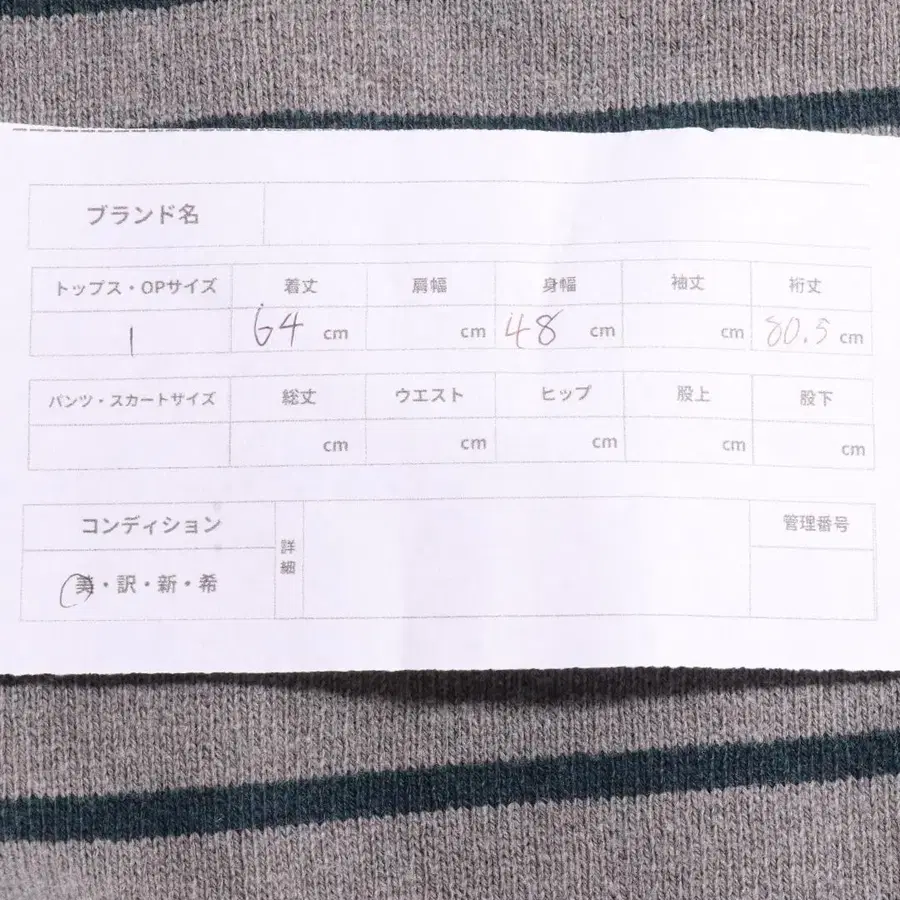 ブランド名
トップス・OPサイズ 着丈 肩幅 身幅 袖丈 裄丈
1 64 cm cm 48 cm cm 80.5 cm
パンツ・スカートサイズ 総丈 ウエスト ヒップ 股上 股下
cm cm cm cm cm
コンディション 詳細 管理番号
美・訳・新・希